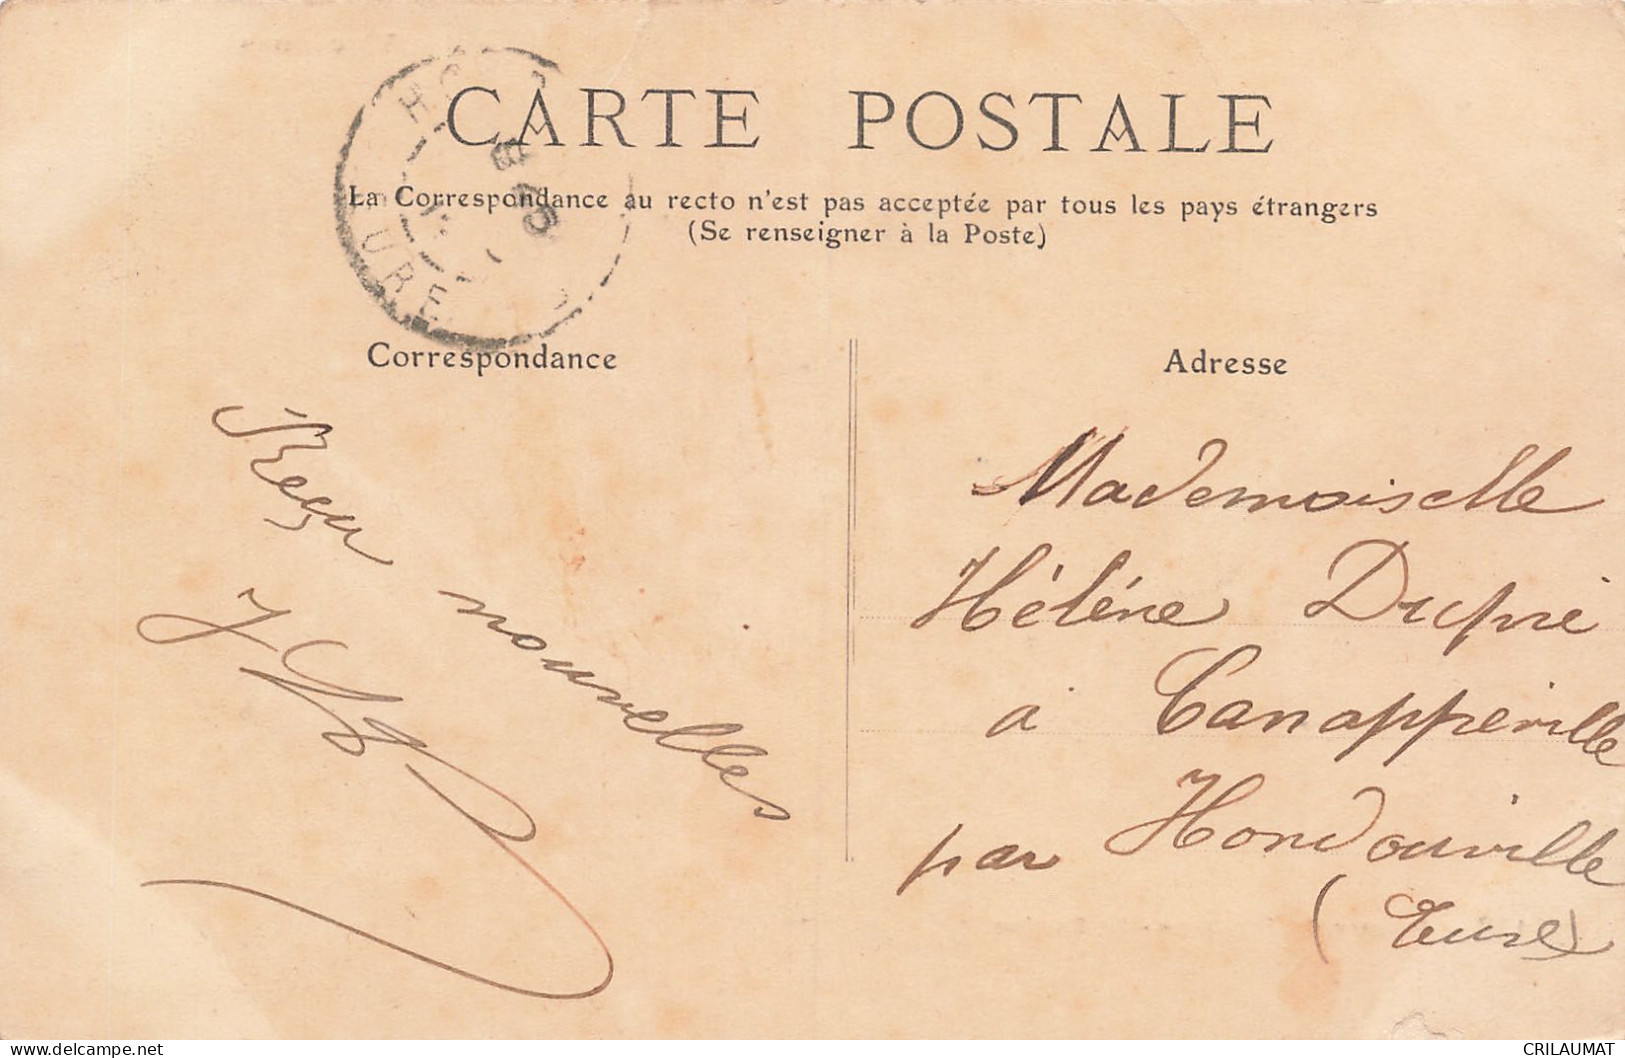 CARTE POSTALE
La Correspondance au recto n'est pas acceptée par tous les pays étrangers
(Se renseigner à la Poste)
URE
Correspondance
Adresse
Reçu nouvelles
Mademoiselle
Hélène Dupré
à Canappeville
par Hondouville
(Eure)
CRILAUMAT